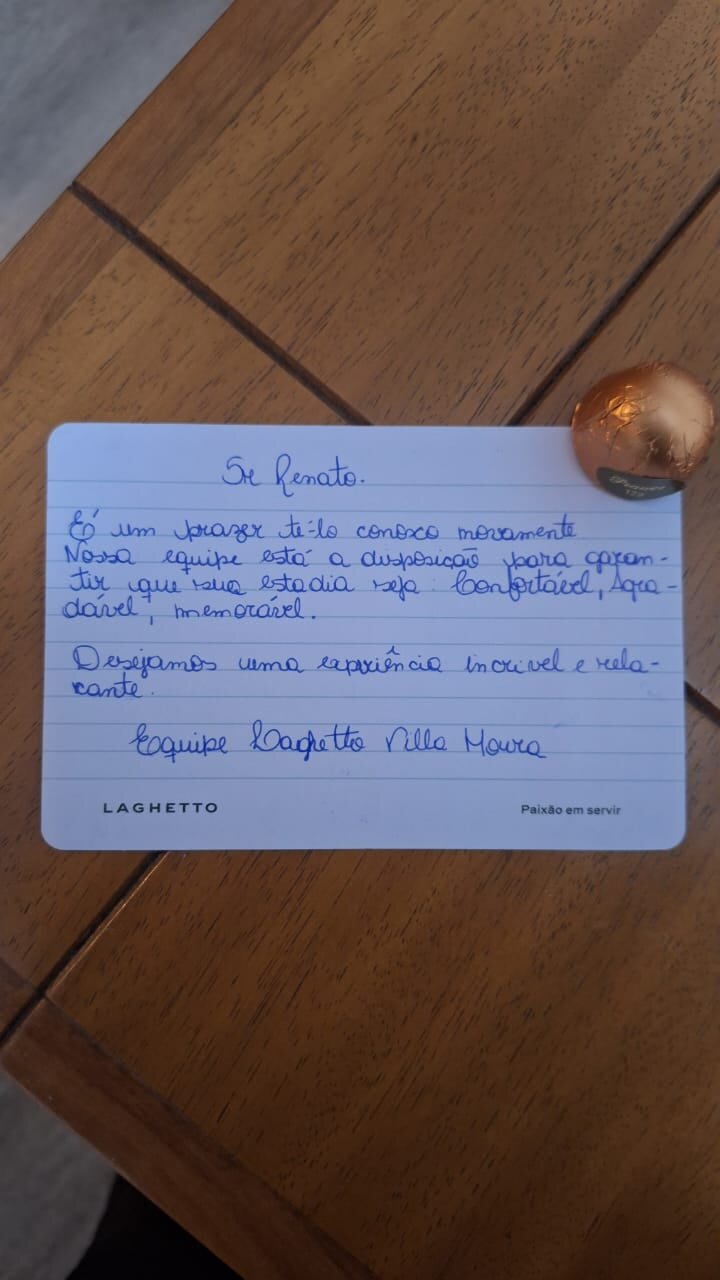 Sr Renato.
É um prazer tê-lo conosco novamente
Nossa equipe está a disposição para garan-
tir que sua estadia seja: Confortável, Agra-
dável, memorável.
Desejamos uma experiência incrivel e rela-
xante.
Equipe Laghetto Villa Moura
LAGHETTO
Paixão em servir